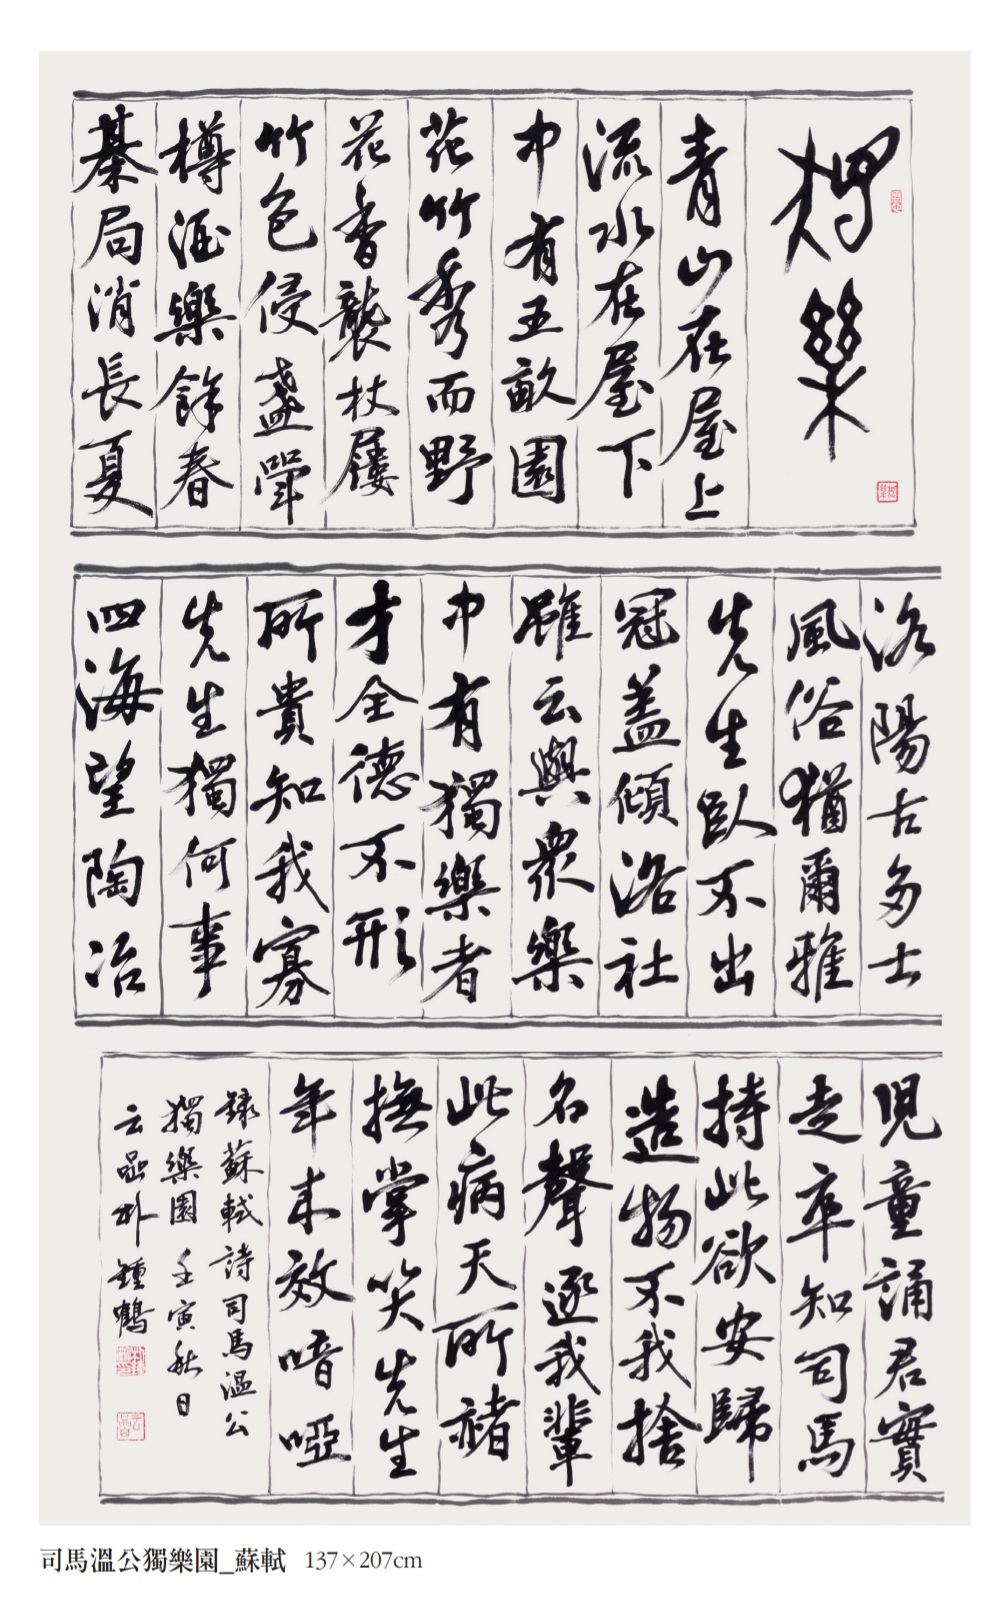 獨樂
青山在屋上
流水在屋下
中有五畝園
花竹秀而野
花香襲杖屨
竹色侵盞斝
樽酒樂餘春
棊局消長夏
洛陽古多士
風俗猶爾雅
先生臥不出
冠蓋傾洛社
雖云與衆樂
中有獨樂者
才全德不形
所貴知我寡
先生獨何事
四海望陶冶
兒童誦君實
走卒知司馬
持此欲安歸
造物不我捨
名聲逐我輩
此病天所赭
撫掌笑先生
年來效喑啞
録蘇軾詩司馬溫公
獨樂園 壬寅秋日
云嵒朴鍾鶴
司馬溫公獨樂園_蘇軾 137×207cm